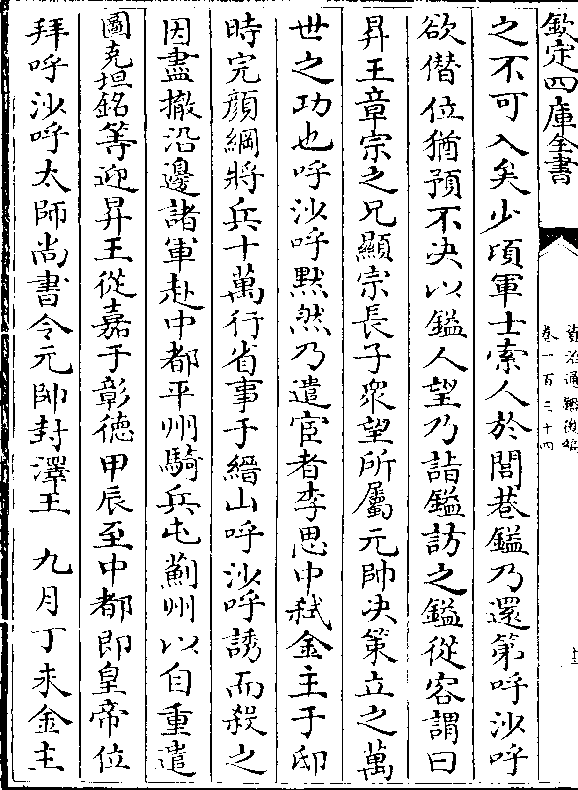 欽定四庫全書
資治通鑑後編
卷一百三十四
之不可入矣少頃軍士索人於閭巷鎰乃還第呼沙呼
欲僭位猶預不決以鎰人望乃詣鎰訪之鎰從容謂曰
昇王章宗之兄顯宗長子衆望所屬元帥决策立之萬
世之功也呼沙呼默然乃遣宦者李思中弑金主于邸
時完顔綱將兵十萬行省事于縉山呼沙呼誘而殺之
因盡撤沿邊諸軍赴中都平州騎兵屯薊州以自重遣
圖克坦銘等迎昇王從嘉于彰德甲辰至中都即皇帝位
拜呼沙呼太師尚書令元帥封澤王　九月丁未金主